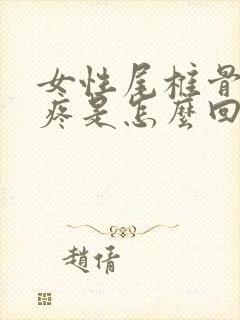 女性尾椎骨
疼是怎麼回
趙倩